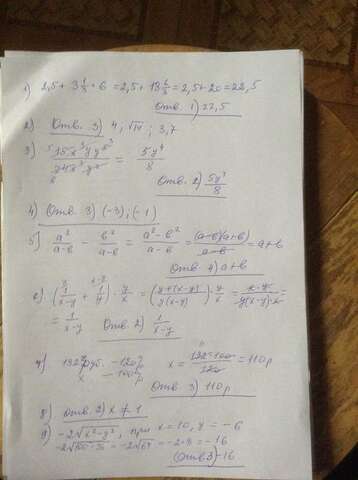 1) 2,5 + 3 1/3 · 6 = 2,5 + 18 6/3 = 2,5 + 20 = 22,5
Отв. 1) 22,5
2) Отв. 3) 4, √14; 3,7
3) 15x³y y³ / 24x³y² = 5y⁴/8
Отв. 2) 5y⁴/8
4) Отв. 3) (-3); (-1)
5) a²/a-b - b²/a-b = a²-b²/a-b = (a-b)(a+b)/a-b = a+b
Отв. 4) a+b
6) (1/x-y + 1/y) · y/x = (y+(x-y)/y(x-y)) · y/x = x·y/y(x-y)·x =
= 1/x-y
Отв. 2) 1/x-y
7) 132 руб. - 120%
x - 100%
x = 132·100/120 = 110р
Отв. 3) 110р
8) Отв. 2) x ≠ 1
9) -2√x²-y², при x = 10, y = -6
-2√100-36 = -2√64 = -2·8 = -16
(Отв 3) -16